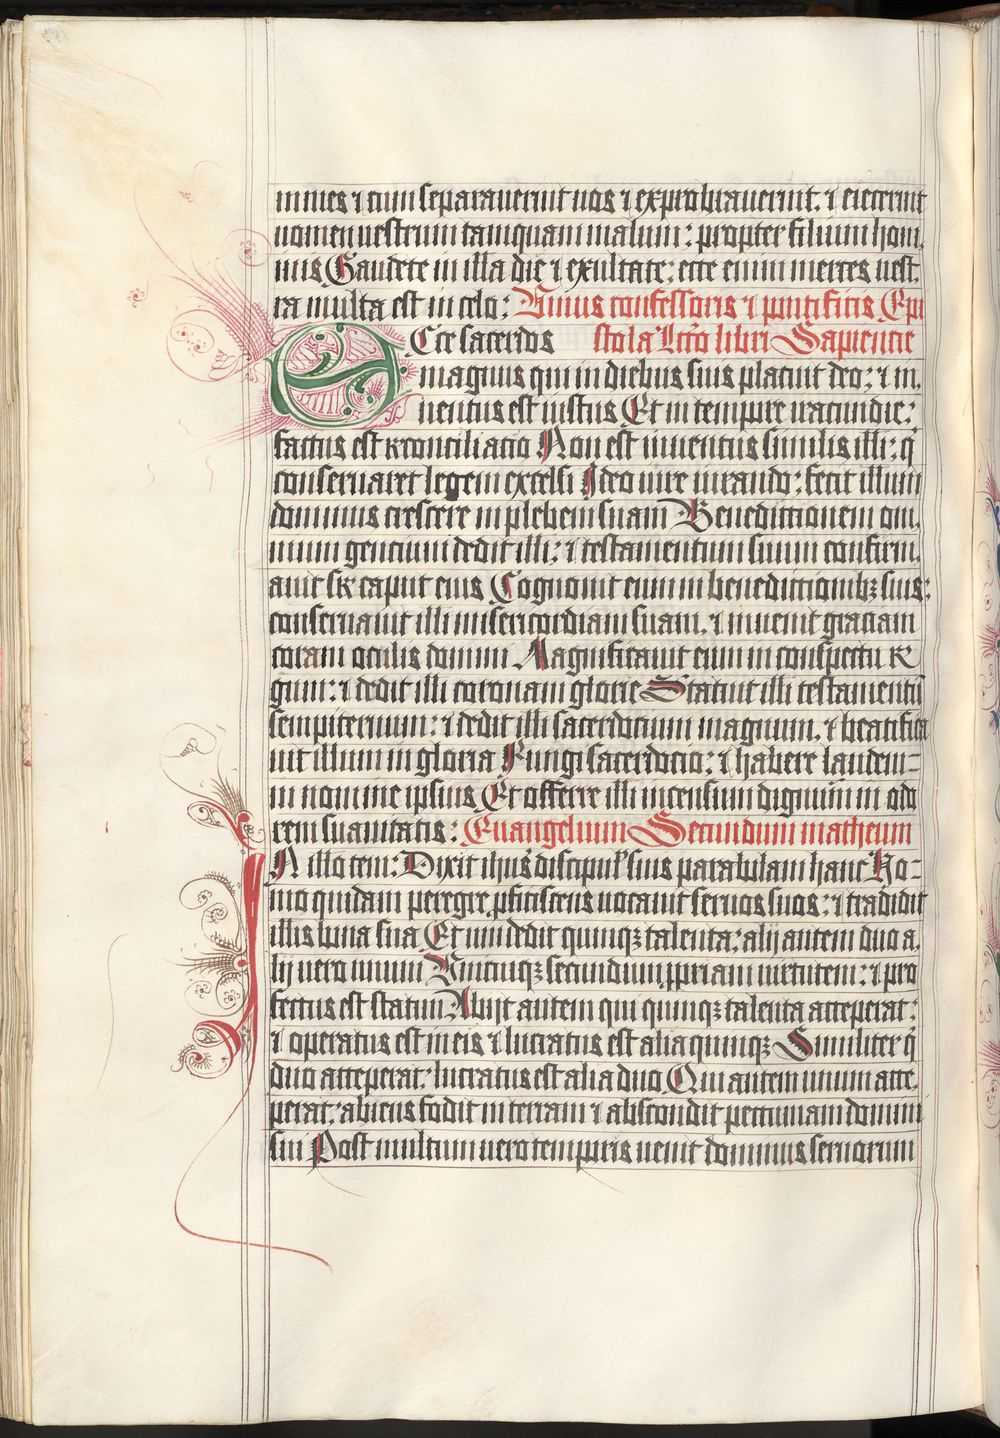 mines ⁊ cum separauerint uos ⁊ exprobrauerint. ⁊ eiecerint
nomen uestrum tamquam malum: propter filium homi,
nis Gaudete in illa die ⁊ exultate: ecce enim merces uest,
ra multa est in celo: Unius confessoris ⁊ pontificis Epi
Ecce sacerdos stola Lc̄to libri Sapiencie
magnus qui in diebus suis placuit deo: ⁊ in,
uentus est iustus Et in tempore iracundie:
factus est reconciliatio Non est inuentus similis illi: q̄
conseruaret legem excelsi Ideo iure iurando: fecit illum
dominus crescere in plebem suam Benedictionem om,
nium gentium dedit illi: ⁊ testamentum suum confirm,
auit sr̄ caput eius Cognouit eum in benedictionibꝫ suis:
conseruauit illi misericordiam suam. ⁊ inuenit graciam
coram oculis domini Magnificauit eum in conspectu re
gum: ⁊ dedit illi coronam glorie Statuit illi testamentū
sempiternum: ⁊ dedit illi sacerdotium magnum. ⁊ beatifica
uit illum in gloria Fungi sacerdocio: ⁊ habere laudem=
in nomine ipsius Et offerre illi incensum dignum in odo
rem suauitatis: Euangelium Secundum matheum
IN illo tem: Dixit ihūs discipul' suis parabulam hanc Ho=
mo quidam peregre ꝓficiscens uocauit seruos suos: ⁊ tradidit
illis bona sua Et uni dedit quinqꝫ talenta: alij autem duo a,
lij uero unum Unicuiqꝫ secundum ꝓpriam uirtutem: ⁊ pro
fectus est statim Abijt autem qui quinqꝫ talenta acceperat:
⁊ operatus est in eis ⁊ lucratus est alia quinqꝫ Similiter q̄
duo acceperat: lucratus est alia duo Qui autem unum acce,
perat: abiens fodit in terram ⁊ abscondit pecuniam domini
sui Post multum uero temporis uenit dominus seruorum